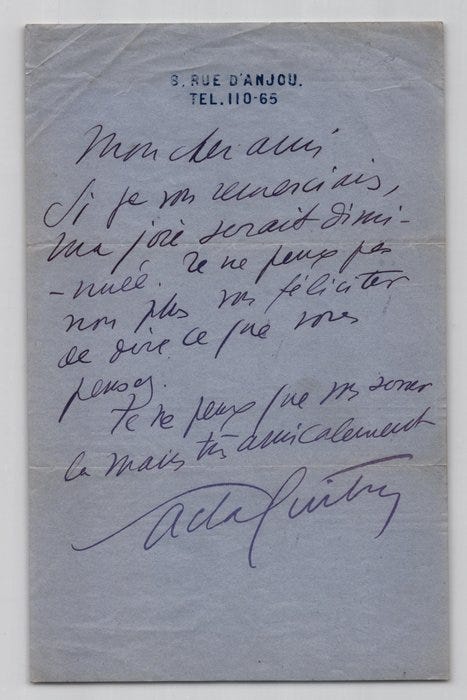 8, RUE D'ANJOU.
TEL. 110-65
Mon cher ami
Si je vous remerciais,
ma joie serait dimi-
-nuée. Je ne peux pas
non plus vous féliciter
de dire ce que vous
pensez.
Je ne peux que vous serrer
la main très amicalement
Sacha Guitry